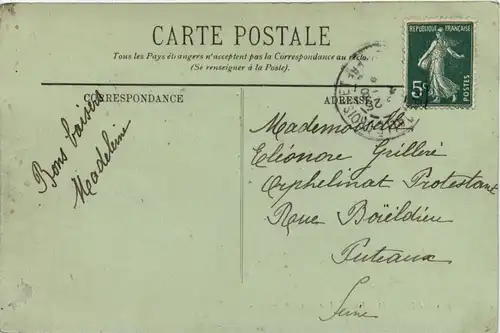 CARTE POSTALE
Tous les Pays étrangers n'acceptent pas la Correspondance au recto.
(Se renseigner à la Poste).
CORRESPONDANCE
ADRESSE
RÉPUBLIQUE FRANÇAISE
5c
POSTES
Bons baisers
Madeleine
Mademoiselle
Eléonore Grilleré
Orphelinat Protestant
Rue Boïeldieu
Puteaux
Seine